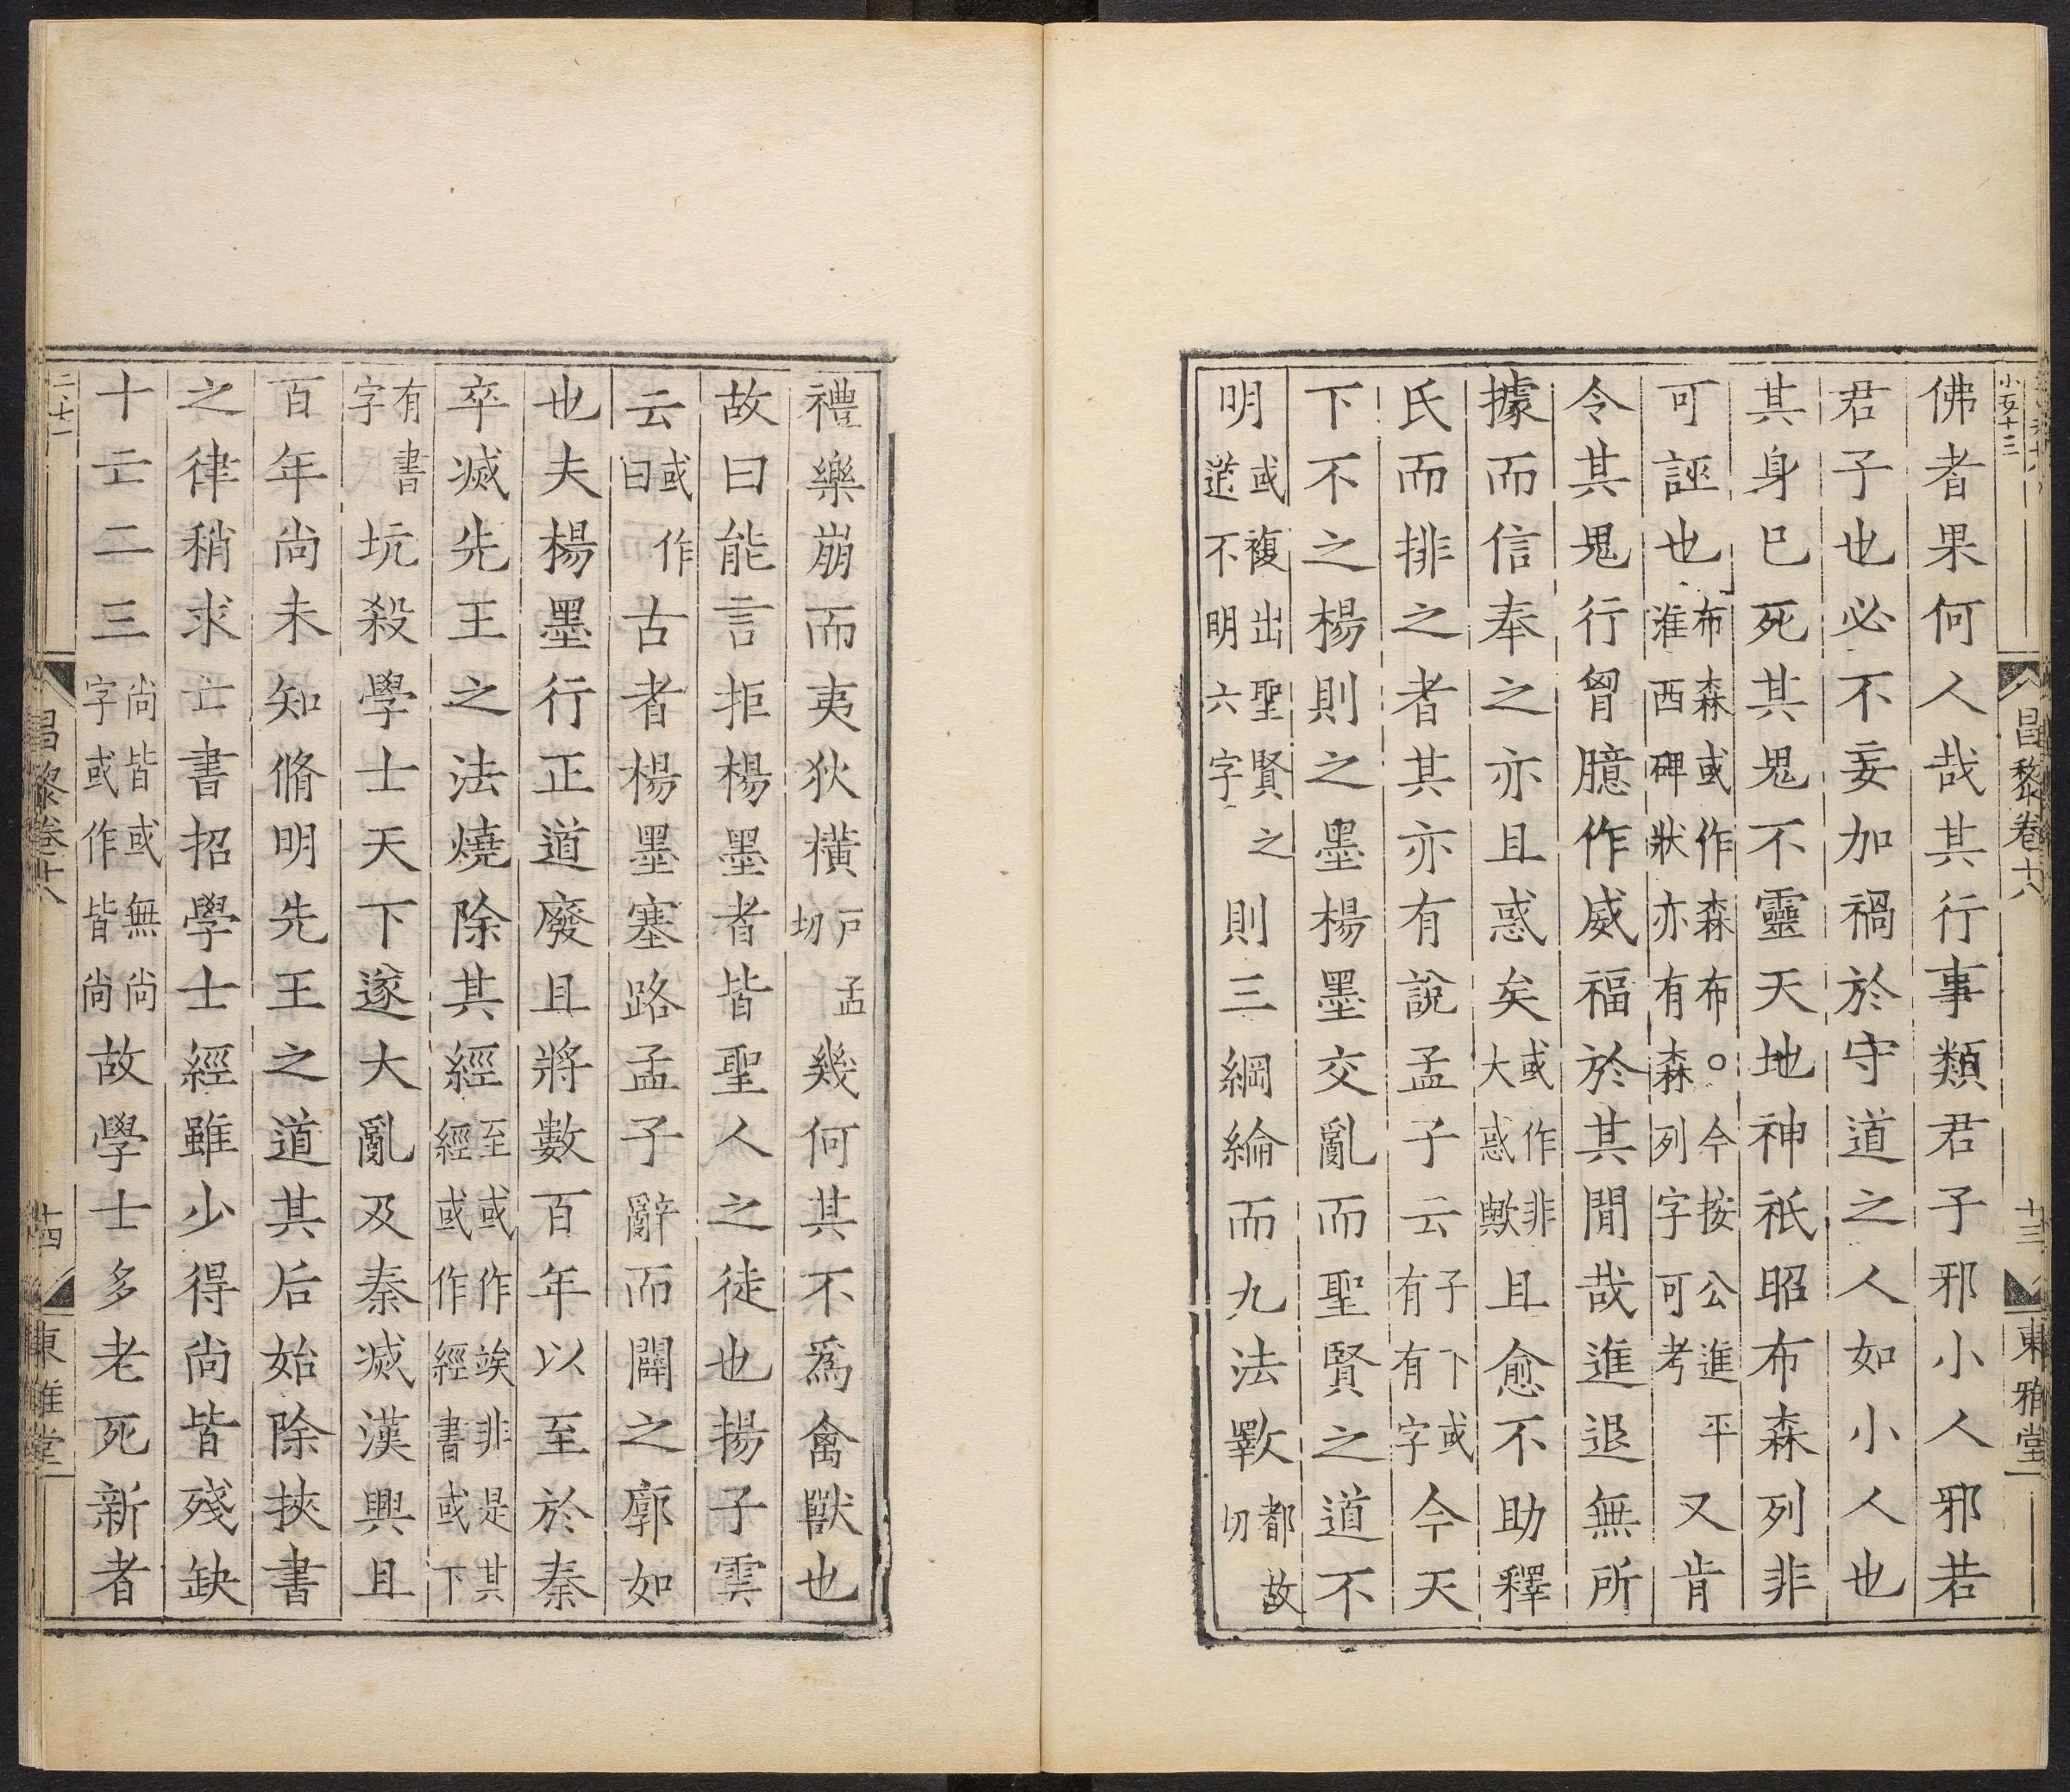 小五十三
昌黎卷十八
十三
東雅堂
佛者果何人哉其行事類君子邪小人邪若
君子也必不妄加禍於守道之人如小人也
其身已死其鬼不靈天地神祇昭布森列非
可誣也布森或作森布○今按公進平淮西碑狀亦有森列字可考又肯
令其鬼行胷臆作威福於其閒哉進退無所
據而信奉之亦且惑矣或作非大惑歟且愈不助釋
氏而排之者其亦有說孟子云子下或有有字今天
下不之楊則之墨楊墨交亂而聖賢之道不
明或複出聖賢之道不明六字則三綱綸而九法斁都故切
禮樂崩而夷狄橫戸孟切幾何其不爲禽獸也
故曰能言拒楊墨者皆聖人之徒也揚子雲
云或作曰古者楊墨塞路孟子辭而闢之廓如
也夫楊墨行正道廢且將數百年以至於秦
卒滅先王之法燒除其經至或作竢非是其經或作經書或下
有書字坑殺學士天下遂大亂及秦滅漢興且
百年尚未知脩明先王之道其后始除挾書
之律稍求亡書招學士經雖少得尚皆殘缺
十亡二三尚皆或無尚字或作皆尚故學士多老死新者
昌黎卷十八
十四
東雅堂